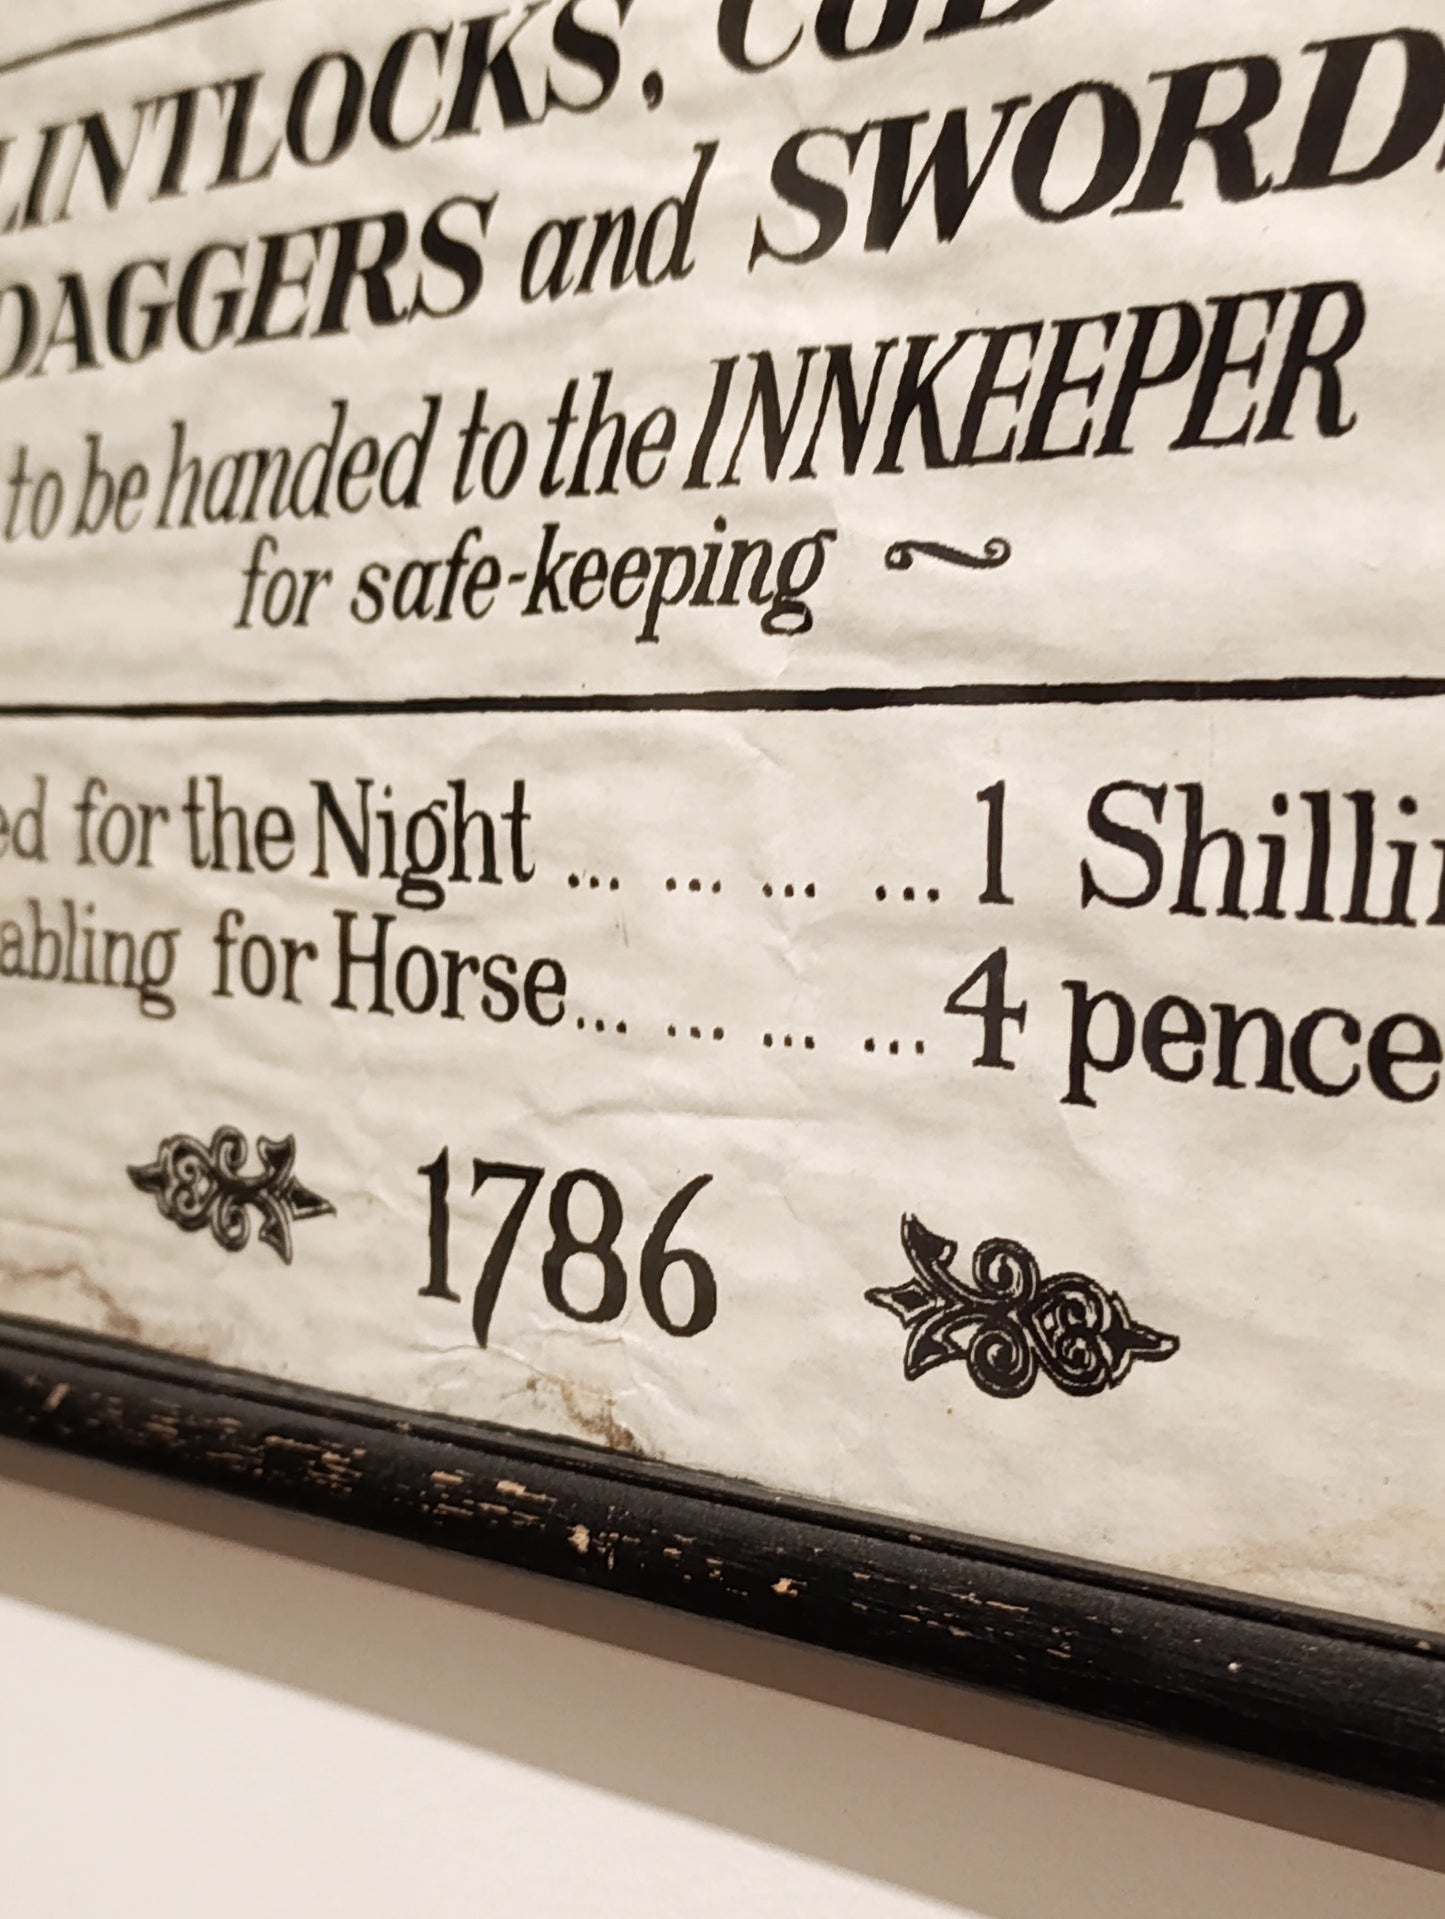 LINTLOCKS, CUD
DAGGERS and SWORDS
to be handed to the INNKEEPER
for safe-keeping ~
ed for the Night ... ... ... ... 1 Shillin
abling for Horse... ... ... ... 4 pence
1786